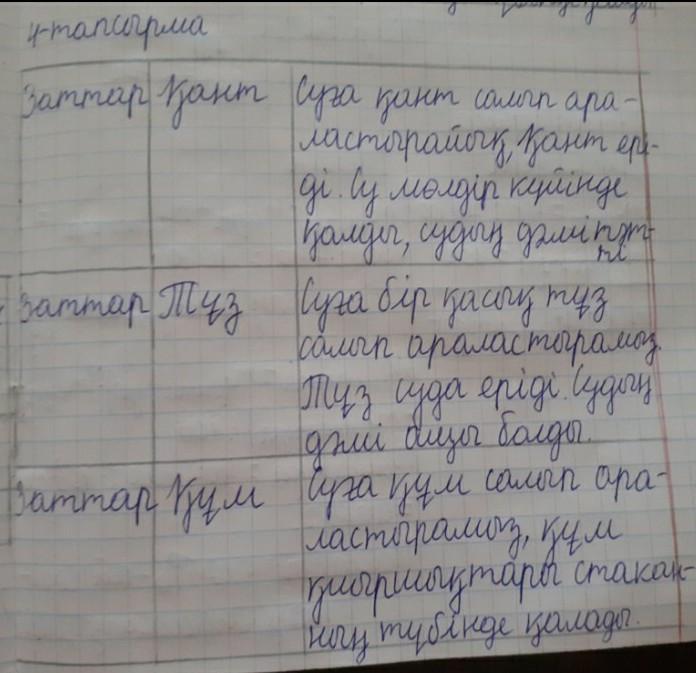 4-тапсырма
Заттар Қант Суға қант салып ара-
ластырайық, Қант ері-
ді. Су мөлдір күйінде
қалды, судың дәмі тәт-
ті
Заттар Тұз Суға бір қасық тұз
салып араластырамыз.
Тұз суда еріді. Судың
дәмі ащы болды.
Заттар Құм Суға құм салып ара-
ластырамыз, құм
қиыршықтары стакан-
ның түбінде қалады.